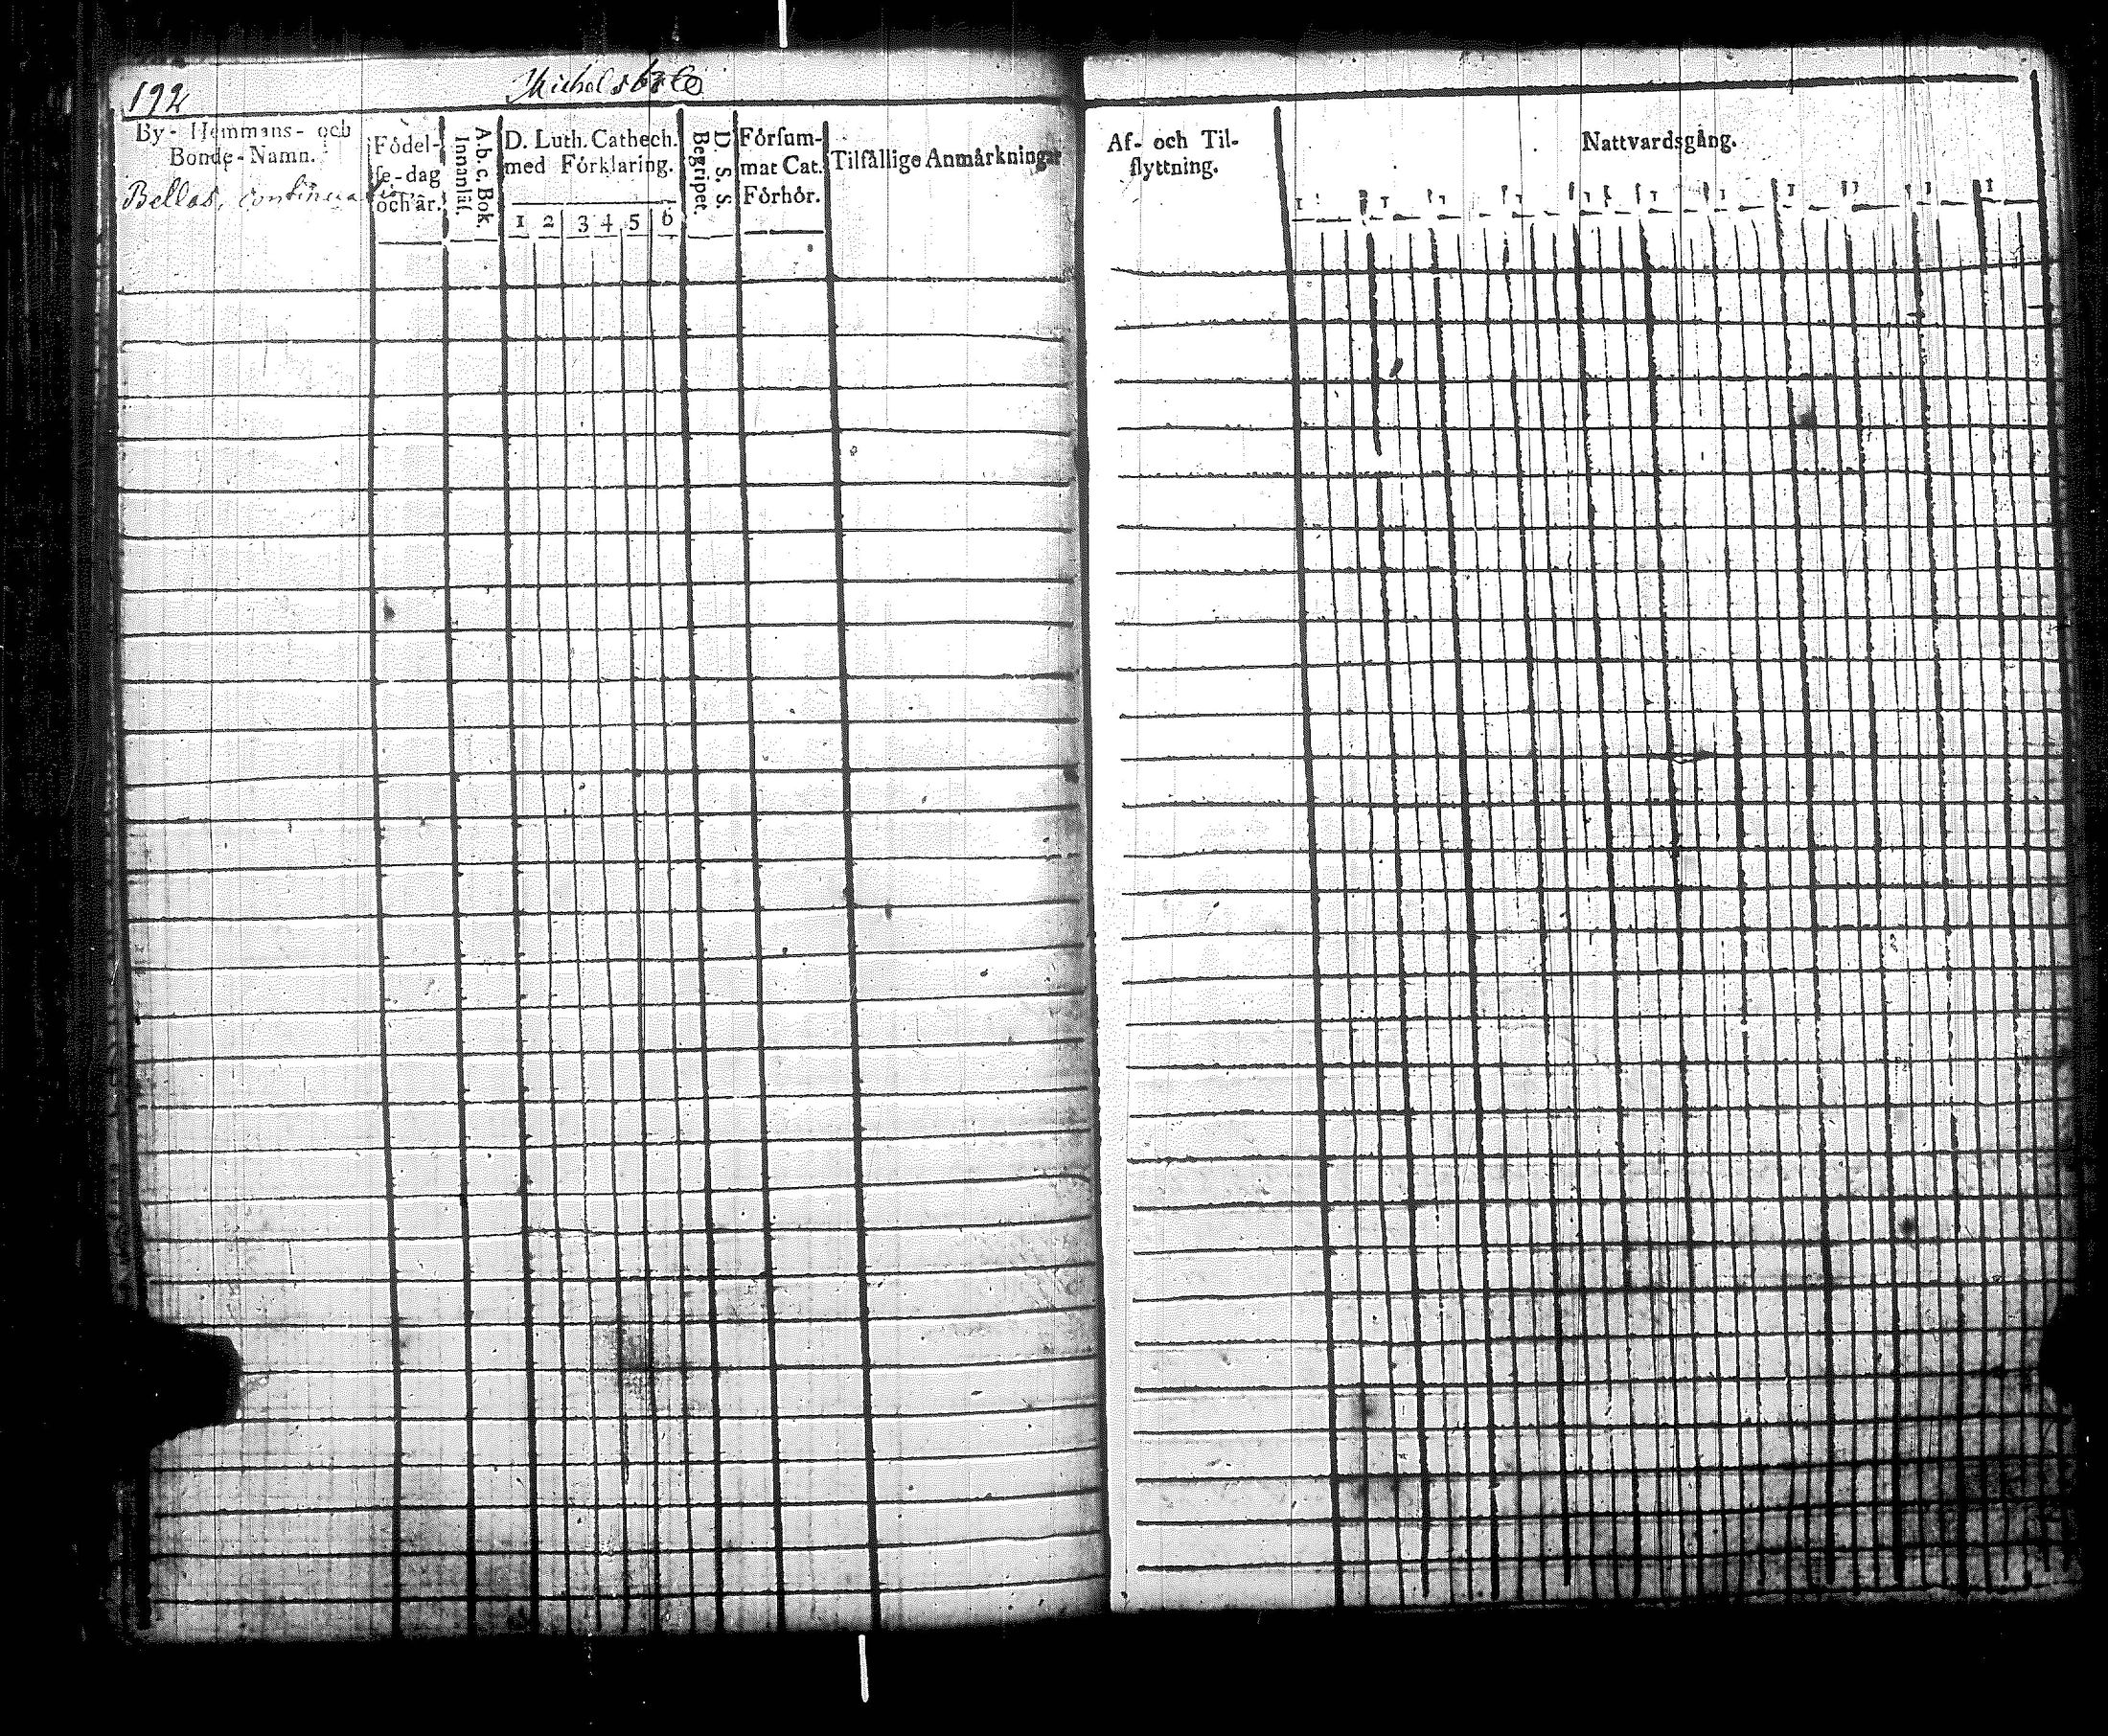 192
Michelsböle
By- Hemmans- och
Bonde-Namn.
Bellas, continuation
Födel-
se-dag
och år.
A.b.c. Bok.
Innanläs.
D. Luth. Cathech.
med Förklaring.
1 2 3 4 5 6
D. S. S.
Begripet.
Försum-
mat Cat.
Förhör.
Tilfällige Anmärkningar
Af- och Til-
flyttning.
Nattvardsgång.